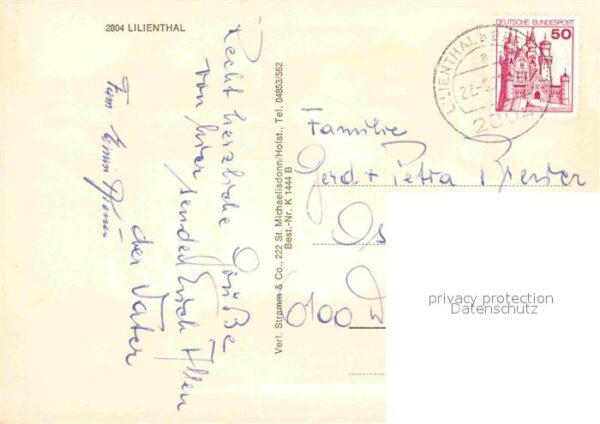 2804 LILIENTHAL
Recht herzliche Grüße
von hier sendet Euch Allen
der Vater
Verl. Stramm & Co., 222 St. Michaelisdonn/Holst., Tel. 04853/562
Best.-Nr. K 1444 B
DEUTSCHE BUNDESPOST
50
LILIENTHAL
22.
2804
Familie
Gerd + Petra
privacy protection
Datenschutz